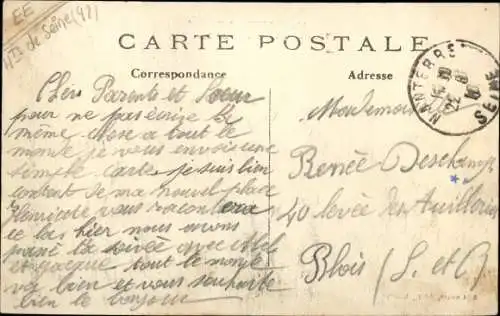 EE
Hts de Seine (92)
CARTE POSTALE
Correspondance
Adresse
NANTERRE
SEINE
Chers Parents et Soeur
pour ne pas écrire la
même chose a tout le
monde je vous envois une
simple carte je suis bien
content de ma nouvel place
vous racontera
ce las hier nous avons
passé la soirée avec
et tout le monde
va bien et vous souhaite
bien le bonjour
Mademoi
Renée Deschamps
40 levée des Tuileries
Blois (L. et C)